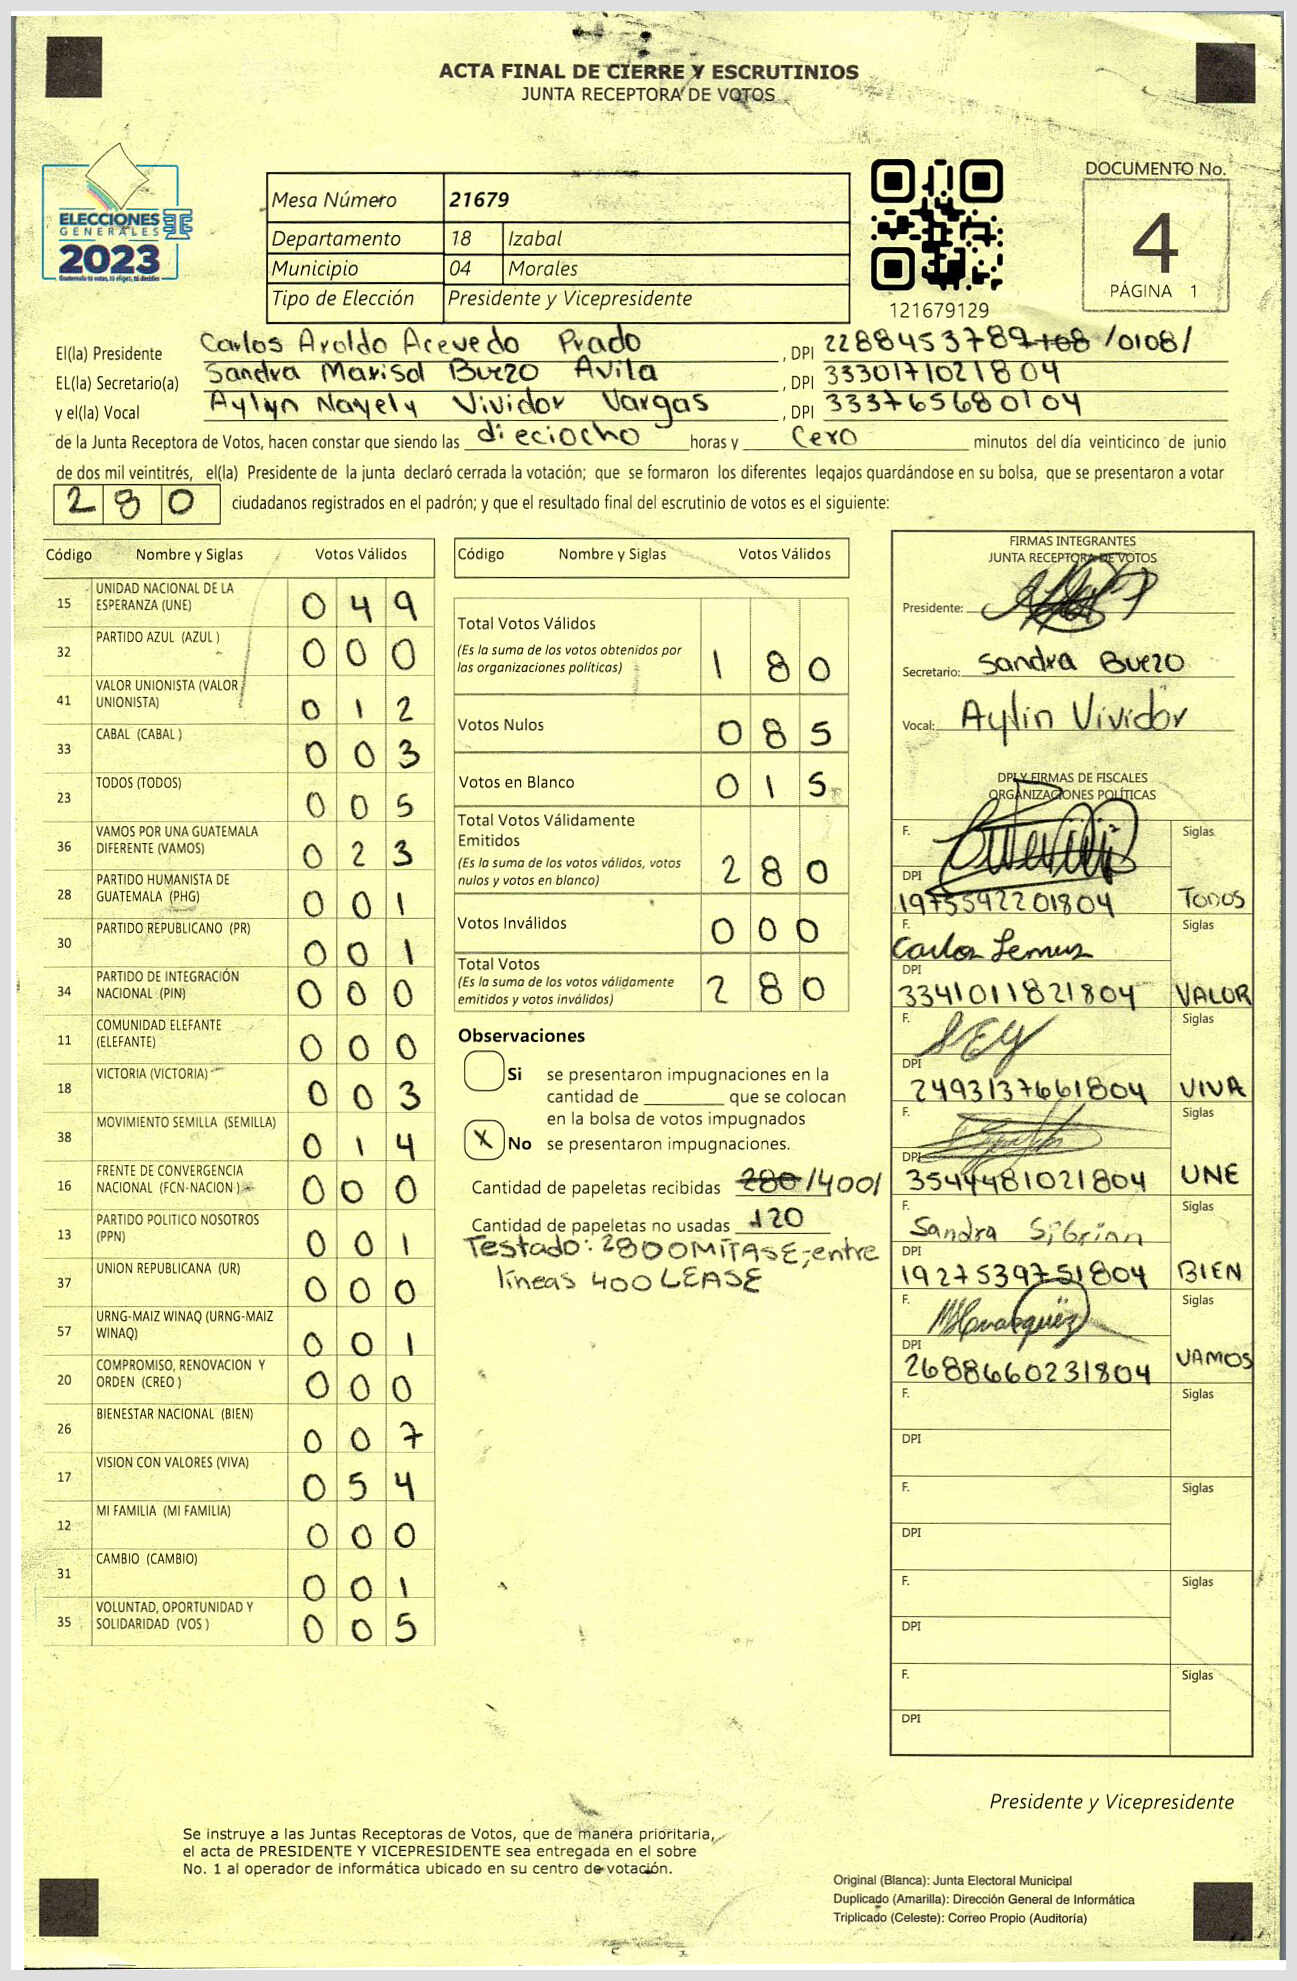 ACTA FINAL DE CIERRE Y ESCRUTINIOS
JUNTA RECEPTORA DE VOTOS
ELECCIONES
GENERALES
2023
Guatemala tú votas, tú eliges, tú decides
Mesa Número 21679
Departamento 18 Izabal
Municipio 04 Morales
Tipo de Elección Presidente y Vicepresidente
121679129
DOCUMENTO No.
4
PÁGINA 1
El(la) Presidente Carlos Aroldo Acevedo Prado , DPI 2288453789 /0108/
EL(la) Secretario(a) Sandra Marisol Buezo Avila , DPI 3330171021804
y el(la) Vocal Aylyn Nayely Vividor Vargas , DPI 333765680104
de la Junta Receptora de Votos, hacen constar que siendo las dieciocho horas y Cero minutos del día veinticinco de junio
de dos mil veintitrés, el(la) Presidente de la junta declaró cerrada la votación; que se formaron los diferentes legajos guardándose en su bolsa, que se presentaron a votar
280 ciudadanos registrados en el padrón; y que el resultado final del escrutinio de votos es el siguiente:
Código Nombre y Siglas Votos Válidos
15 UNIDAD NACIONAL DE LA ESPERANZA (UNE) 049
32 PARTIDO AZUL (AZUL ) 000
41 VALOR UNIONISTA (VALOR UNIONISTA) 012
33 CABAL (CABAL ) 003
23 TODOS (TODOS) 005
36 VAMOS POR UNA GUATEMALA DIFERENTE (VAMOS) 023
28 PARTIDO HUMANISTA DE GUATEMALA (PHG) 001
30 PARTIDO REPUBLICANO (PR) 001
34 PARTIDO DE INTEGRACIÓN NACIONAL (PIN) 000
11 COMUNIDAD ELEFANTE (ELEFANTE) 000
18 VICTORIA (VICTORIA) 003
38 MOVIMIENTO SEMILLA (SEMILLA) 014
16 FRENTE DE CONVERGENCIA NACIONAL (FCN-NACION ) 000
13 PARTIDO POLITICO NOSOTROS (PPN) 001
37 UNION REPUBLICANA (UR) 000
57 URNG-MAIZ WINAQ (URNG-MAIZ WINAQ) 001
20 COMPROMISO, RENOVACION Y ORDEN (CREO ) 000
26 BIENESTAR NACIONAL (BIEN) 007
17 VISION CON VALORES (VIVA) 054
12 MI FAMILIA (MI FAMILIA) 000
31 CAMBIO (CAMBIO) 001
35 VOLUNTAD, OPORTUNIDAD Y SOLIDARIDAD (VOS ) 005
Código Nombre y Siglas Votos Válidos
Total Votos Válidos
(Es la suma de los votos obtenidos por
las organizaciones políticas) 180
Votos Nulos 085
Votos en Blanco 015
Total Votos Válidamente
Emitidos
(Es la suma de los votos válidos, votos
nulos y votos en blanco) 280
Votos Inválidos 000
Total Votos
(Es la suma de los votos válidamente
emitidos y votos inválidos) 280
Observaciones
Si se presentaron impugnaciones en la
cantidad de ________ que se colocan
en la bolsa de votos impugnados
X No se presentaron impugnaciones.
Cantidad de papeletas recibidas 280 /400/
Cantidad de papeletas no usadas 120
Testado: 280 OMITASE; entre
líneas 400 LEASE
FIRMAS INTEGRANTES
JUNTA RECEPTORA DE VOTOS
Presidente:
Secretario: Sandra Buezo
Vocal: Aylin Vividor
DPI Y FIRMAS DE FISCALES
ORGANIZACIONES POLÍTICAS
F. Siglas
DPI 1975542201804 TODOS
F. Carlos Lemus Siglas
DPI 3341011821804 VALOR
F. Siglas
DPI 2493137661804 VIVA
F. Siglas
DPI 3544481021804 UNE
F. Sandra Siglas
DPI 1927539751804 BIEN
F. Siglas
DPI 2688660231804 VAMOS
F. Siglas
DPI
F. Siglas
DPI
F. Siglas
DPI
F. Siglas
DPI
Presidente y Vicepresidente
Se instruye a las Juntas Receptoras de Votos, que de manera prioritaria,
el acta de PRESIDENTE Y VICEPRESIDENTE sea entregada en el sobre
No. 1 al operador de informática ubicado en su centro de votación.
Original (Blanca): Junta Electoral Municipal
Duplicado (Amarilla): Dirección General de Informática
Triplicado (Celeste): Correo Propio (Auditoría)